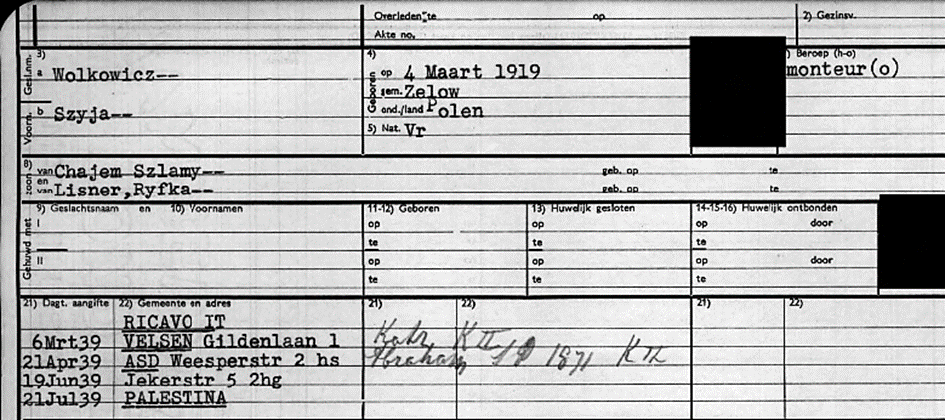 Overleden te op 2) Gezinsv.
Akte no.
3) 4) Beroep (h-o)
Gesl.nm. a Wolkowicz-- Geboren op 4 Maart 1919 monteur(o)
gem. Zelow
Voorn. b Szyja-- ond./land Polen
5) Nat. Vr
8) zoon van Chajem Szlamy-- geb. op te
en van Lisner,Ryfka-- geb. op te
9) Geslachtsnaam en 10) Voornamen 11-12) Geboren 13) Huwelijk gesloten 14-15-16) Huwelijk ontbonden
Gehuwd met I op op op door
te te te
II op op op door
te te te
21) Dagt. aangifte 22) Gemeente en adres 21) 22) 21) 22)
RICAVO IT
6Mrt39 VELSEN Gildenlaan 1 K II
21Apr39 ASD Weesperstr 2 hs Abraham 1871 K II
19Jun39 Jekerstr 5 2hg
21Jul39 PALESTINA